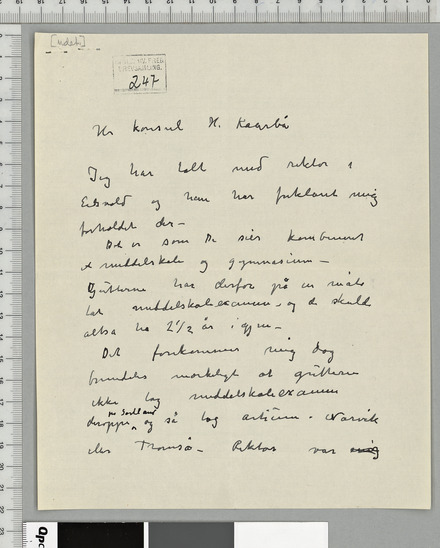 [udat]
247
Hr konsul H. Kaarbø
Jeg har talt med rektor i
Eidsvold og han har forklaret mig
forholdet der —
Det er som De sier kombineret
middelskole og gymnasium —
Guttene har derfor på en måte
tat middelskoleexamen, og de skulde
altsa ha 2½ år i gym —
Det forekommer mig dog
besynderlig at guttene
ikke tog middelskoleexamen
deroppe og så tog artium i Narvik
eller Tromsø — Rektor var